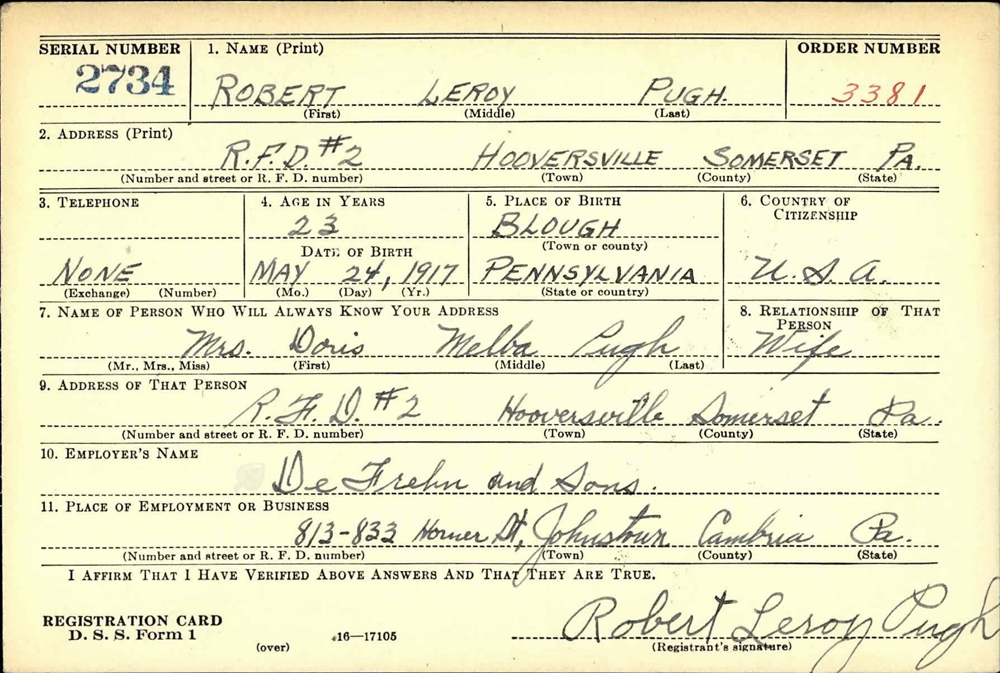 SERIAL NUMBER 1. NAME (Print) ORDER NUMBER
2734 ROBERT LEROY PUGH. 3381
(First) (Middle) (Last)
2. ADDRESS (Print)
R.F.D. #2 HOOVERSVILLE SOMERSET PA.
(Number and street or R. F. D. number) (Town) (County) (State)
3. TELEPHONE 4. AGE IN YEARS 5. PLACE OF BIRTH 6. COUNTRY OF
CITIZENSHIP
23 BLOUGH
(Town or county)
DATE OF BIRTH
NONE MAY 24, 1917 PENNSYLVANIA U.S.A.
(Exchange) (Number) (Mo.) (Day) (Yr.) (State or country)
7. NAME OF PERSON WHO WILL ALWAYS KNOW YOUR ADDRESS 8. RELATIONSHIP OF THAT
PERSON
Mrs. Doris Melba Pugh Wife
(Mr., Mrs., Miss) (First) (Middle) (Last)
9. ADDRESS OF THAT PERSON
R.F.D. #2 Hooversville Somerset Pa.
(Number and street or R. F. D. number) (Town) (County) (State)
10. EMPLOYER'S NAME
De Frehn and Sons.
11. PLACE OF EMPLOYMENT OR BUSINESS
813-833 Horner St, Johnstown Cambria Pa.
(Number and street or R. F. D. number) (Town) (County) (State)
I AFFIRM THAT I HAVE VERIFIED ABOVE ANSWERS AND THAT THEY ARE TRUE.
REGISTRATION CARD
D. S. S. Form 1 16—17105 Robert Leroy Pugh
(over) (Registrant's signature)